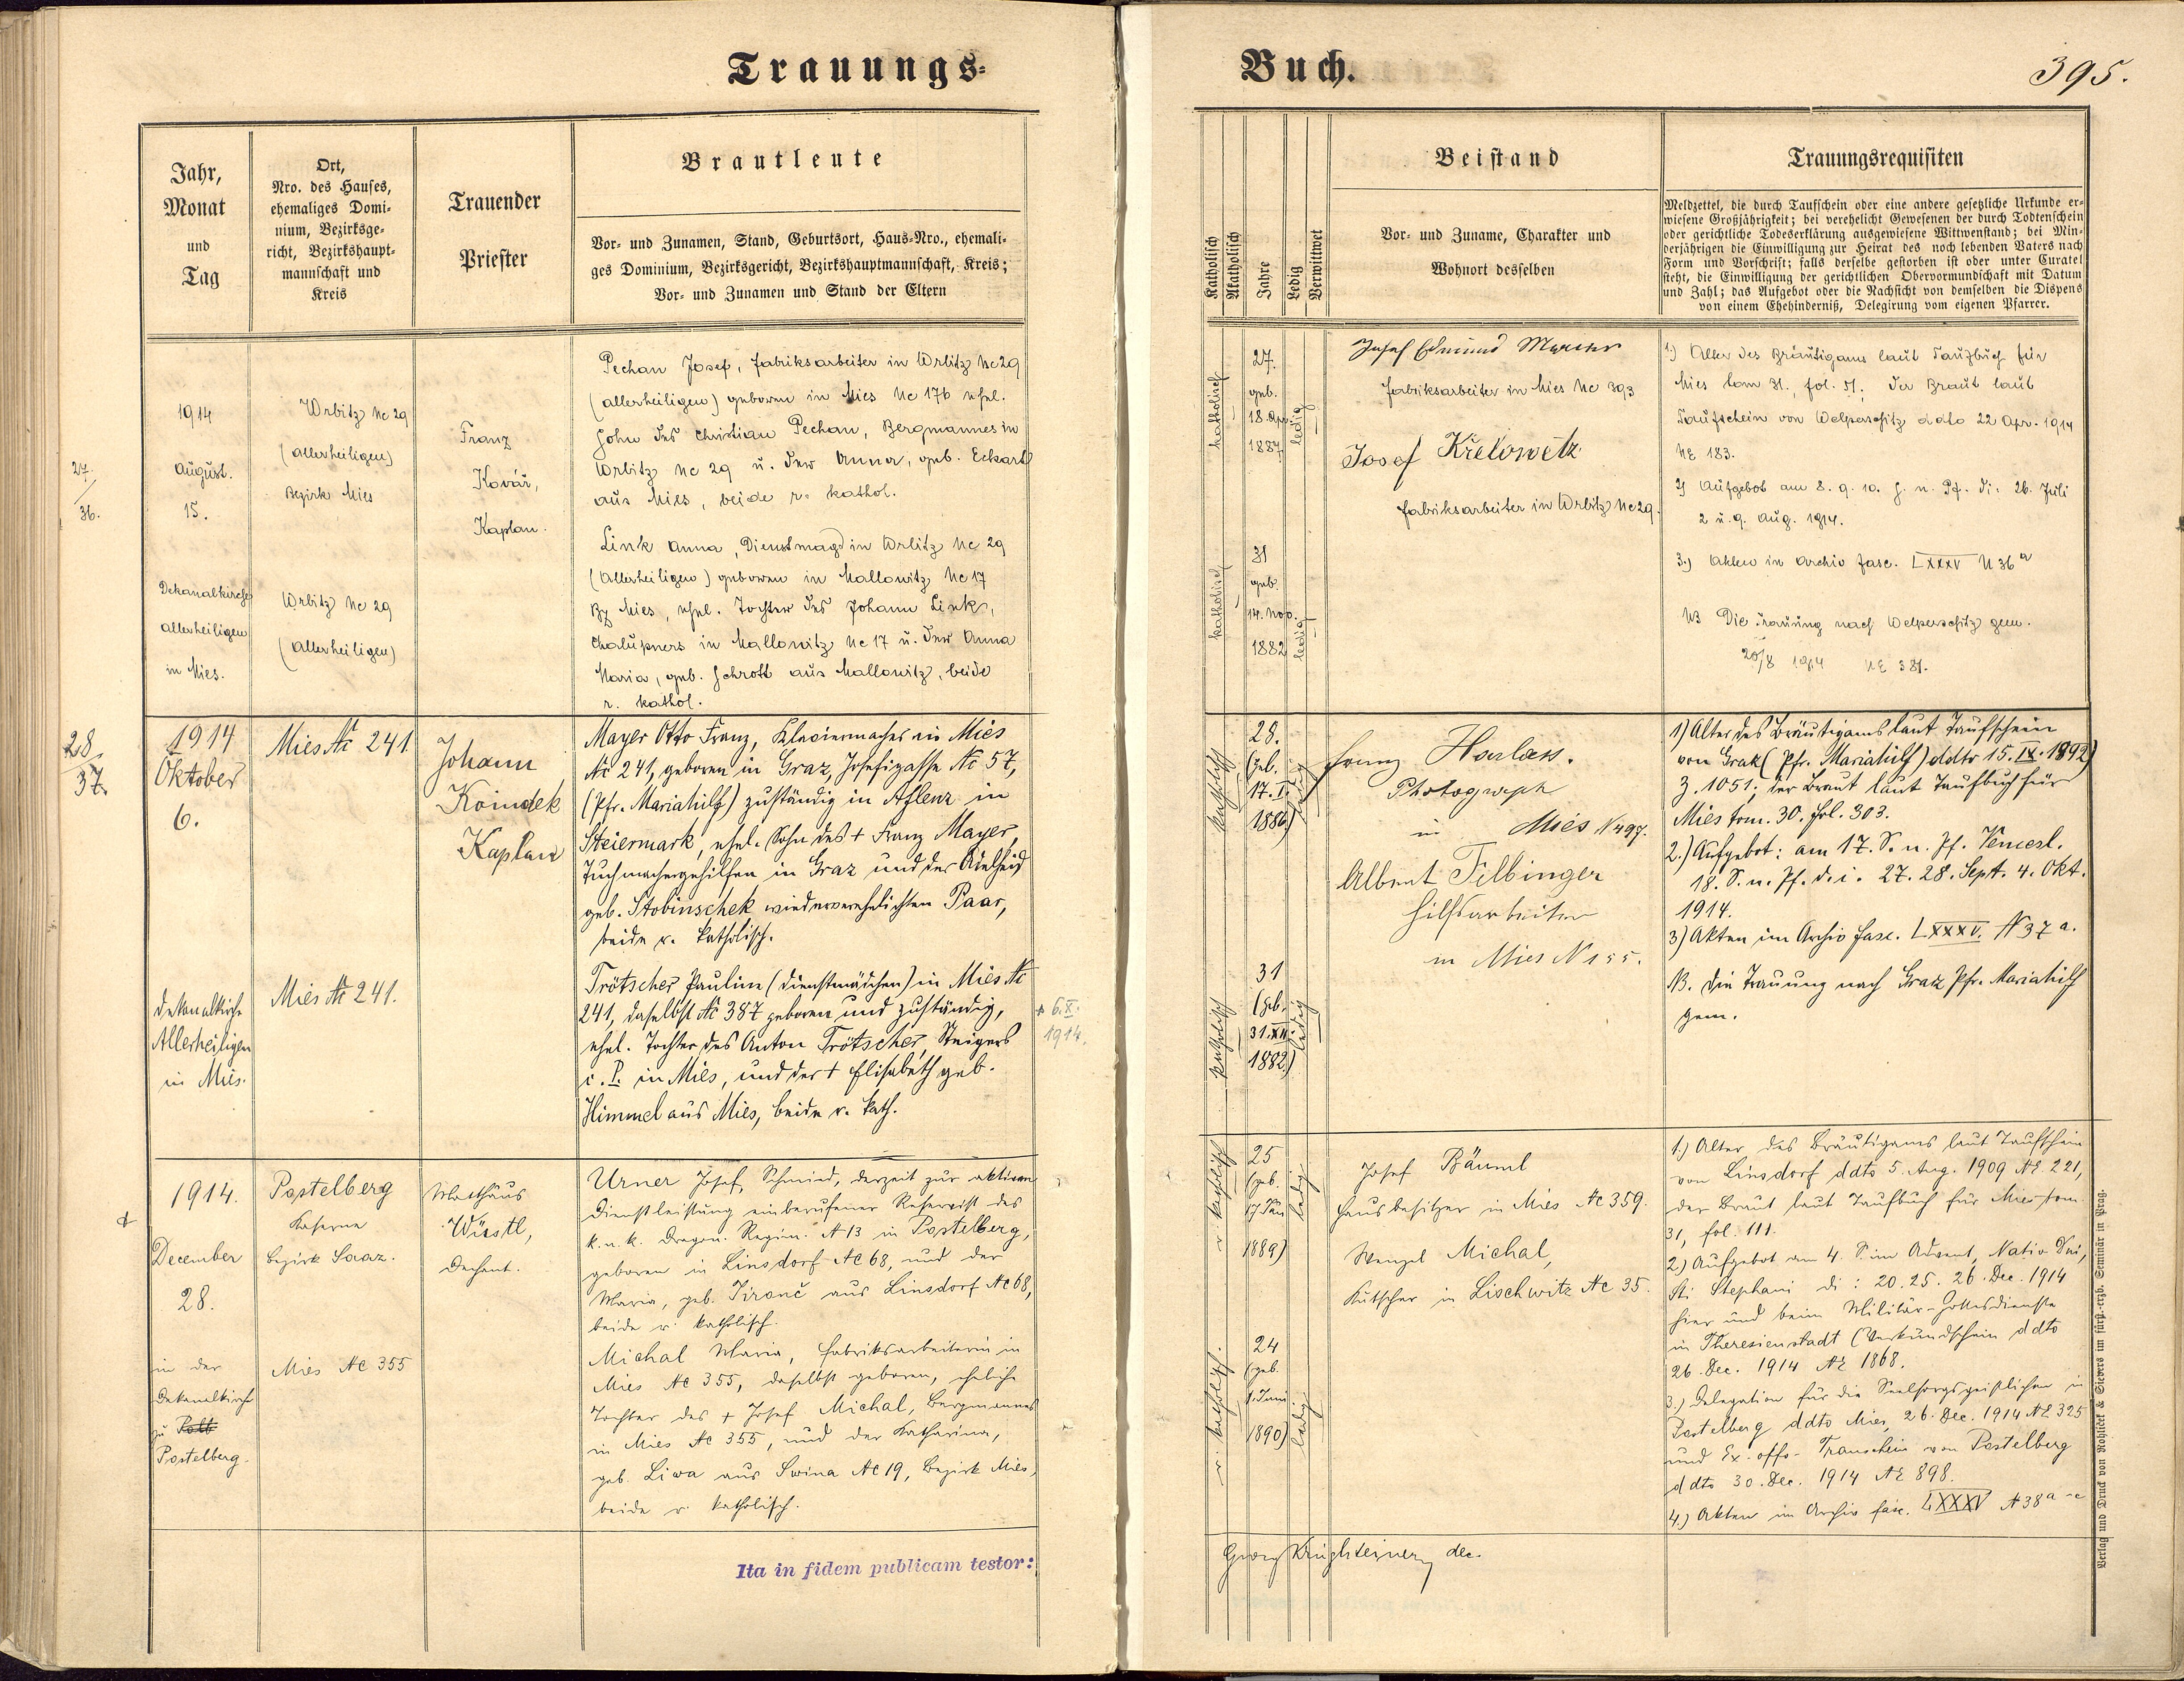 Trauungs-
Buch.
395.
Jahr,
Monat
und
Tag
Ort,
Nro. des Hauses,
ehemaliges Domi-
nium, Bezirksge-
richt, Bezirkshaupt-
mannschaft und
Kreis
Trauender
Priester
Brautleute
Vor- und Zunamen, Stand, Geburtsort, Haus-Nro., ehemali-
ges Dominium, Bezirksgericht, Bezirkshauptmannschaft, Kreis;
Vor- und Zunamen und Stand der Eltern
Katholisch
Akatholisch
Jahre
Ledig
Verwittwet
Beistand
Vor- und Zuname, Charakter und
Wohnort desselben
Trauungsrequisiten
Meldzettel, die durch Taufschein oder eine andere gesetzliche Urkunde er-
wiesene Großjährigkeit; bei verehelicht Gewesenen der durch Todtenschein
oder gerichtliche Todeserklärung ausgewiesene Wittwenstand; bei Min-
derjährigen die Einwilligung zur Heirat des noch lebenden Vaters nach
Form und Vorschrift; falls derselbe gestorben ist oder unter Curatel
steht, die Einwilligung der gerichtlichen Obervormundschaft mit Datum
und Zahl; das Aufgebot oder die Nachsicht von demselben die Dispens
von einem Ehehinderniß, Delegirung vom eigenen Pfarrer.
27.
36.
1914
August.
15.
Dekanalkirche
Allerheiligen
in Mies.
Wrbitz Nc 29
(Allerheiligen)
Bezirk Mies
Wrbitz Nc 29
(Allerheiligen)
Franz
Kovář,
Kaplan.
Pechan Josef, Fabriksarbeiter in Wrbitz Nc 29
(Allerheiligen) geboren in Mies Nc 176 ehel.
Sohn des Christian Pechan, Bergmannes in
Wrbitz Nc 29 u. der Anna, geb. Eckart
aus Mies, beide r. kathol.
Link Anna, Dienstmagd in Wrbitz Nc 29
(Allerheiligen) geboren in Mallowitz Nc 17
Bz Mies, ehel. Tochter des Johann Link,
Chalupners in Mallowitz Nc 17 u. der Anna
Maria, geb. Schrott aus Mallowitz, beide
r. kathol.
katholisch
27.
geb.
18. Apr.
1887
ledig
katholisch
31
geb.
14. Nov.
1882
ledig
Josef Edmund
Fabriksarbeiter in Mies Nc 393
Josef Křelowetz
Fabriksarbeiter in Wrbitz Nc 29.
1.) Alter des Bräutigams laut Taufbuch für
Mies tom 31., fol. 51. der Braut laut
Taufschein von Welperschitz ddo 22 Apr. 1914
NE 183.
2) Aufgebot am 8. 9. 10. S. n. Pf. di: 26. Juli
2 u. 9. Aug. 1914.
3.) Akten in Archiv fasc. LXXXV N 36 a
NB Die Trauung nach Welperschitz gem.
20/8 1914 NE 381.
28.
37.
1914
Oktober
6.
Dekanalkirche
Allerheiligen
in Mies.
Mies Nc 241
Mies Nc 241.
Johann
Koindek
Kaplan
Mayer Otto Franz, Klaviermacher in Mies
Nc 241, geboren in Graz, Josefigasse Nc 57,
(Pfr. Mariahilf) zuständig in Aflenz in
Steiermark, ehel. Sohn des + Franz Mayer,
Tuchmachergehilfen in Graz und der Adelheid
geb. Stobinschek wiederverehelichten Paar,
beide r. katholisch.
Trötscher Pauline (Dienstmädchen) in Mies Nc
241, daselbst Nc 387 geboren und zuständig,
ehel. Tochter des Anton Trötscher, Steigers
i. P. in Mies, und der + Elisabeth geb.
Himmel aus Mies, beide r. kath.
+ 6. X.
1914.
katholisch
28.
(geb.
17. I.
1886)
ledig
katholisch
31
(geb.
31. XII.
1882)
ledig
Franz Harlass.
Photograph
in Mies N 497.
Albert Filbinger
Hilfsarbeiter
in Mies N 155.
1) Alter des Bräutigams laut Taufschein
von Graz (Pfr. Mariahilf) ddto 15. IX. 1892)
Z. 1051; der Braut laut Taufbuch für
Mies tom. 30. fol. 303.
2.) Aufgebot: am 17. S. n. Pf. Vencesl.
18. S. n. Pf. d. i. 27. 28. Sept. 4. Okt.
1914.
3) Akten im Archiv fasc. LXXXV. N 37 a.
NB. Die Trauung nach Graz Pfr. Mariahilf
gem.
1914.
December
28.
in der
Dekanalkirche
zu Post
Postelberg.
Postelberg
Kaserne
Bezirk Saaz.
Mies Nc 355
Matthäus
Wüstl,
Dechant.
Urner Josef, Schmied, derzeit zur aktiven
Dienstleistung einberufener Reservist des
k. u. k. Dragon. Regim. N 13 in Postelberg,
geboren in Linsdorf Nc 68, und der
Maria, geb. Jirouč aus Linsdorf Nc 68,
beide r. katholisch.
Michal Maria, Fabriksarbeiterin in
Mies Nc 355, daselbst geboren, eheliche
Tochter des + Josef Michal, Bergmannes
in Mies Nc 355, und der Katharina,
geb. Liwa aus Swina Nc 19, Bezirk Mies,
beide r. katholisch.
r. katholisch
25
(geb.
17 Jän
1889)
ledig
r. katholisch.
24
(geb.
1. Juni
1890)
ledig
Josef Bäuml
Hausbesitzer in Mies Nc 359.
Wenzel Michal,
Kutscher in Lischwitz Nc 35.
1.) Alter des Bräutigams laut Taufschein
von Linsdorf ddto 5. Aug. 1909 NE 221,
der Braut laut Taufbuch für Mies tom.
31, fol. 111.
2.) Aufgebot am 4. S. im Advent, Nativ. Dni,
Sti Stephani di: 20. 25. 26. Dec. 1914
hier und beim Militär-Gottesdienste
in Theresienstadt (Verkündschein ddto
26. Dec. 1914 NE 1868.
3.) Delegation für die Seelsorgsgeistlichen in
Postelberg ddto Mies, 26. Dec. 1914 NE 325
und Ex-offo-Trauschein von Postelberg
ddto 30. Dec. 1914 NE 898.
4.) Akten im Archiv fasc. LXXXV N 38 a-e
Ita in fidem publicam testor:
Georg dec.
Verlag und Druck von Rohliček & Sievers im fürst.-erzb. Seminär in Prag.